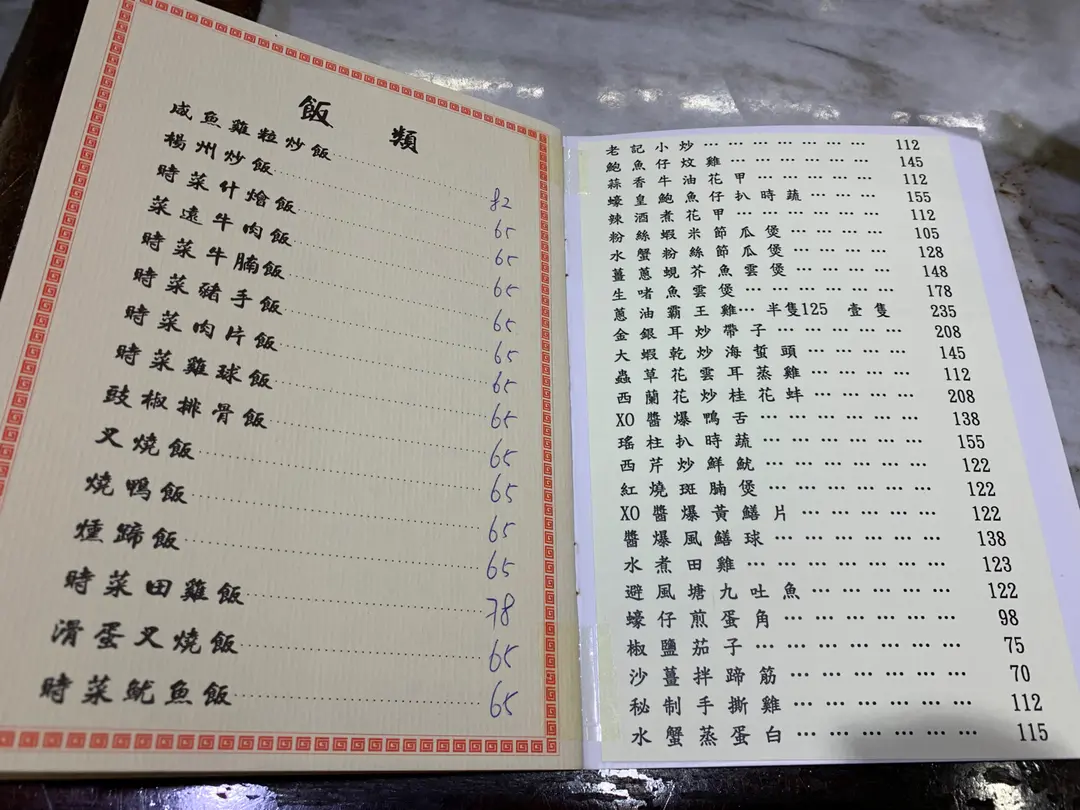 飯類
咸魚雞粒炒飯……82
楊州炒飯……65
時菜什燴飯……65
菜遠牛肉飯……65
時菜牛腩飯……65
時菜豬手飯……65
時菜肉片飯……65
時菜雞球飯……65
豉椒排骨飯……65
叉燒飯……65
燒鴨飯……65
燻蹄飯……65
時菜田雞飯……78
滑蛋叉燒飯……65
時菜魷魚飯……65
老記小炒……112
鮑魚仔炆雞……145
蒜香牛油花甲……112
蠔皇鮑魚仔扒時蔬……155
辣酒煮花甲……112
粉絲蝦米節瓜煲……105
水蟹粉絲節瓜煲……128
薑蔥蜆芥魚雲煲……148
生啫魚雲煲……178
蔥油霸王雞…半隻125 壹隻 235
金銀耳炒帶子……208
大蝦乾炒海蜇頭……145
蟲草花雲耳蒸雞……112
西蘭花炒桂花蚌……208
XO醬爆鴨舌……138
瑤柱扒時蔬……155
西芹炒鮮魷……122
紅燒斑腩煲……122
XO醬爆黃鱔片……122
醬爆風鱔球……138
水煮田雞……123
避風塘九吐魚……122
蠔仔煎蛋角……98
椒鹽茄子……75
沙薑拌蹄筋……70
秘制手撕雞……112
水蟹蒸蛋白……115